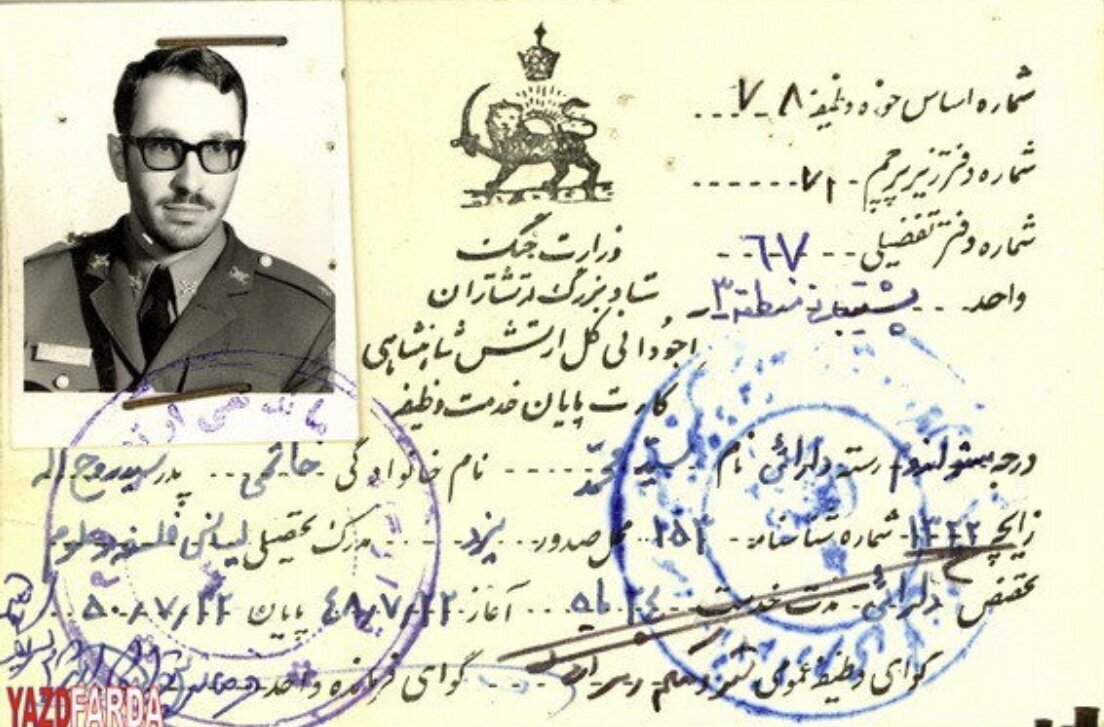 شماره اساس حوزه وظیفه ۷۰۸
شماره دفتر زیر پرچم ۷۱
شماره دفتر تفضیلی ۶۷
واحد پشتیبانی منطقه ۳
وزارت جنگ
ستاد بزرگ ارتشتاران
اجودانی کل ارتش شاهنشاهی
کارت پایان خدمت وظیفه
درجه ستواندوم رسته دارائی نام سید محمد نام خانوادگی خاتمی پدر سید روح اله
زایچ ۱۳۲۲ شماره شناسنامه ۲۵۳ محل صدور یزد مدرک تحصیلی لیسانس فلسفه و علوم
تخصص دارائی مدت خدمت ۲۴ ماه آغاز ۴۸/۷/۲۲ پایان ۵۰/۷/۲۲
گواهی وظیفه عمومی گواهی فرمانده واحد
YAZDFARDA